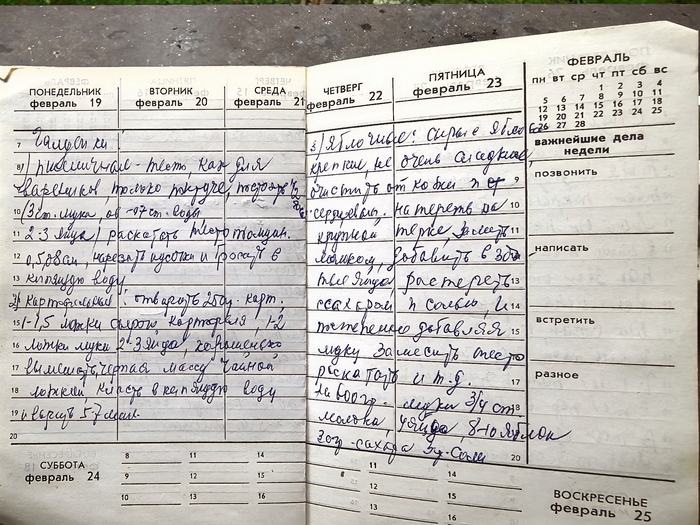 ПОНЕДЕЛЬНИК
февраль 19
ВТОРНИК
февраль 20
СРЕДА
февраль 21
7 Галушки
8 1) пшеничные - тесто, как для
вареников, только покруче, постоять
10 (3 ст. муки, 0,5 - ст. воды
11 2-3 яйца) раскатать тесто толщин.
12 0,5 см, нарезать кусочки и бросать в
13 кипящую воду
2) картофельные: отварить 250 г. карт.
15 1-1,5 ложки сырого картофеля, 1-2
16 ложки муки 2-3 яйца, хорошенько
17 вымешать, массу чайной
18 ложкой класть в кипящую воду
19 и варить 5-7 мин.
20
СУББОТА
февраль 24
8 11 14
9 12 15
10 13 16
ЧЕТВЕРГ
февраль 22
ПЯТНИЦА
февраль 23
3) Яблочные: сырые ябло
крепкие, не очень сладкие
очистить от кожки и от 9
сердцевин. натереть на 10
крупной терке, залить 11
молоком, добавить в
тые яйца растереть 13
с сахаром и солью, и 14
постепенно добавляя 15
муку замесить тесто
раскатать и т.д. 17
На 600 гр. муки 3/4 ст 18
молока, 4 яйца, 8-10 яблок
30 гр. сахара 3 г. соли 20
8 11 14
12 15
13 16
ФЕВРАЛЬ
пн вт ср чт пт сб вс
1 2 3 4
5 6 7 8 9 10 11
12 13 14 15 16 17 18
19 20 21 22 23 24 25
26 27 28
важнейшие дела
недели
позвонить
написать
встретить
разное
ВОСКРЕСЕНЬЕ
февраль 25